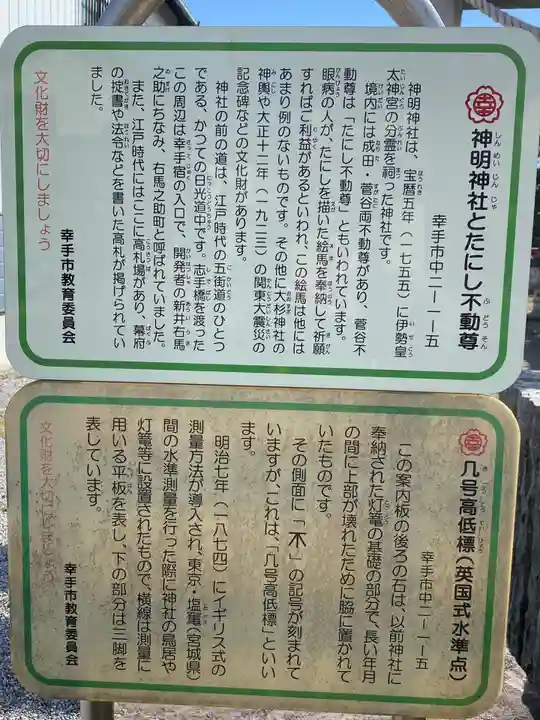 神明神社とたにし不動尊
幸手市中二-一-五
神明神社は、宝暦五年(一七五五)に伊勢皇
太神宮の分霊を祠った神社です。
境内には成田・菅谷両不動尊があり、菅谷不
動尊は「たにし不動尊」ともいわれています。
眼病の人が、たにしを描いた絵馬を奉納して祈願
すればご利益があるといわれ、この絵馬は他には
あまり例のないものです。その他に大杉神社の
神輿や大正十二年(一九二三)の関東大震災の
記念碑などの文化財があります。
神社の前の道は、江戸時代の五街道のひとつ
である、かつての日光道中です。志手橋を渡った
この周辺は幸手宿の入口で、開発者の新井右馬
之助にちなみ、右馬之助町と呼ばれていました。
また、江戸時代にはここに高札場があり、幕府
の掟書や法令などを書いた高札が掲げられてい
ました。
文化財を大切にしましょう
幸手市教育委員会
几号高低標(英国式水準点)
幸手市中二-一-五
この案内板の後ろの石は、以前神社に
奉納された灯篭の基礎の部分で、長い年月
の間に上部が壊れたために脇に置かれて
いたものです。
その側面に「不」の記号が刻まれて
いますが、これは、「几号高低標」といい
ます。
明治七年(一八七四)にイギリス式の
測量方法が導入され、東京・塩竃(宮城県)
間の水準測量を行った際に神社の鳥居や
灯篭等に設置されたもので、横線は測量に
用いる平板を表し、下の部分は三脚を
表しています。
文化財を大切にしましょう
幸手市教育委員会